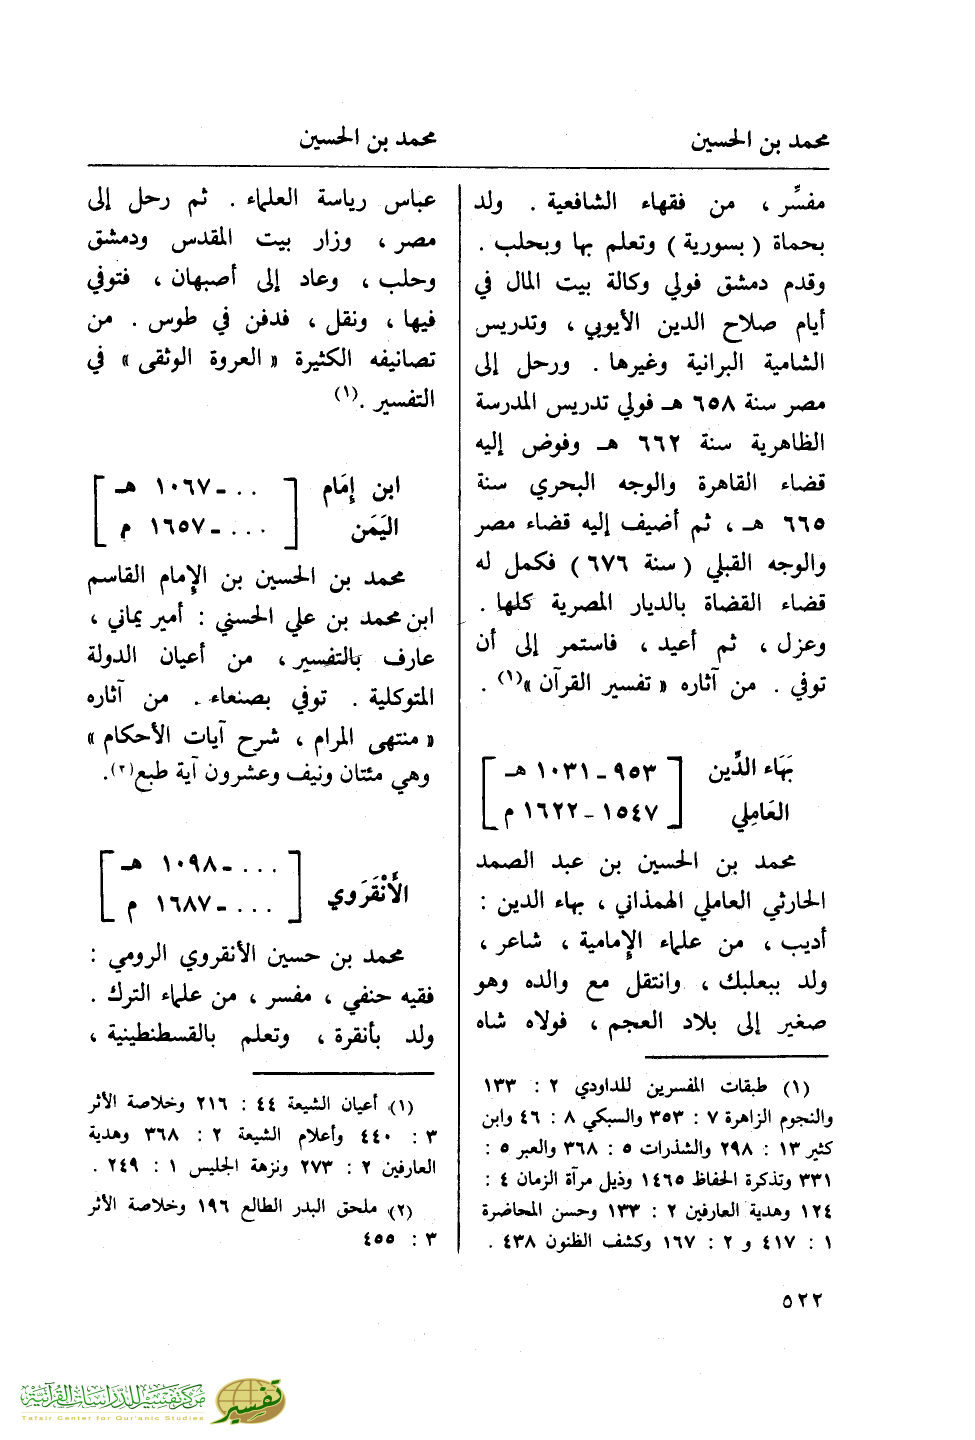 محمد بن الحسين
محمد بن الحسين
مفسِّر ، من فقهاء الشافعية . ولد
بحماة ( بسورية ) وتعلم بها وبحلب .
وقدم دمشق فولي وكالة بيت المال في
أيام صلاح الدين الأيوبي ، وتدريس
الشامية البرانية وغيرها . ورحل إلى
مصر سنة ٦٥٨ هـ فولي تدريس المدرسة
الظاهرية سنة ٦٦٢ هـ وفوض إليه
قضاء القاهرة والوجه البحري سنة
٦٦٥ هـ ، ثم أضيف إليه قضاء مصر
والوجه القبلي ( سنة ٦٧٦ ) فكمل له
قضاء القضاة بالديار المصرية كلها .
وعزل ، ثم أعيد ، فاستمر إلى أن
توفي . من آثاره « تفسير القرآن »(١) .
بَهَاء الدِّين [ ٩٥٣ - ١٠٣١ هـ
العَامِلي ١٥٤٧ - ١٦٢٢ م ]
محمد بن الحسين بن عبد الصمد
الحارثي العاملي الهمذاني ، بهاء الدين :
أديب ، من علماء الإمامية ، شاعر ،
ولد ببعلبك ، وانتقل مع والده وهو
صغير إلى بلاد العجم ، فولاه شاه
(١) طبقات المفسرين للداودي ٢ : ١٣٣
والنجوم الزاهرة ٧ : ٣٥٣ والسبكي ٨ : ٤٦ وابن
كثير ١٣ : ٢٩٨ والشذرات ٥ : ٣٦٨ والعبر ٥ :
٣٣١ وتذكرة الحفاظ ١٤٦٥ وذيل مرآة الزمان ٤ :
١٢٤ وهدية العارفين ٢ : ١٣٣ وحسن المحاضرة
١ : ٤١٧ و ٢ : ١٦٧ وكشف الظنون ٤٣٨ .
عباس رياسة العلماء . ثم رحل إلى
مصر ، وزار بيت المقدس ودمشق
وحلب ، وعاد إلى أصبهان ، فتوفي
فيها ، ونقل ، فدفن في طوس . من
تصانيفه الكثيرة « العروة الوثقى » في
التفسير .(١)
ابن إمَام [ . . . - ١٠٦٧ هـ
اليَمَن . . . - ١٦٥٧ م ]
محمد بن الحسين بن الإمام القاسم
ابن محمد بن علي الحسني : أمير يماني ،
عارف بالتفسير ، من أعيان الدولة
المتوكلية . توفي بصنعاء . من آثاره
« منتهى المرام ، شرح آيات الأحكام »
وهي مئتان ونيف وعشرون آية طبع(٢).
[ . . . - ١٠٩٨ هـ
الأَنْقَرَوي
. . . - ١٦٨٧ م ]
محمد بن حسين الأنقروي الرومي :
فقيه حنفي ، مفسر ، من علماء الترك .
ولد بأنقرة ، وتعلم بالقسطنطينية ،
(١) أعيان الشيعة ٤٤ : ٢١٦ وخلاصة الأثر
٣ : ٤٤٠ وأعلام الشيعة ٢ : ٣٦٨ وهدية
العارفين ٢ : ٢٧٣ ونزهة الجليس ١ : ٢٤٩ .
(٢) ملحق البدر الطالع ١٩٦ وخلاصة الأثر
٣ : ٤٥٥
٥٢٢
مركز تفسير للدراسات القرآنية
Tafsir Center for Qur'anic Studies
تفسير